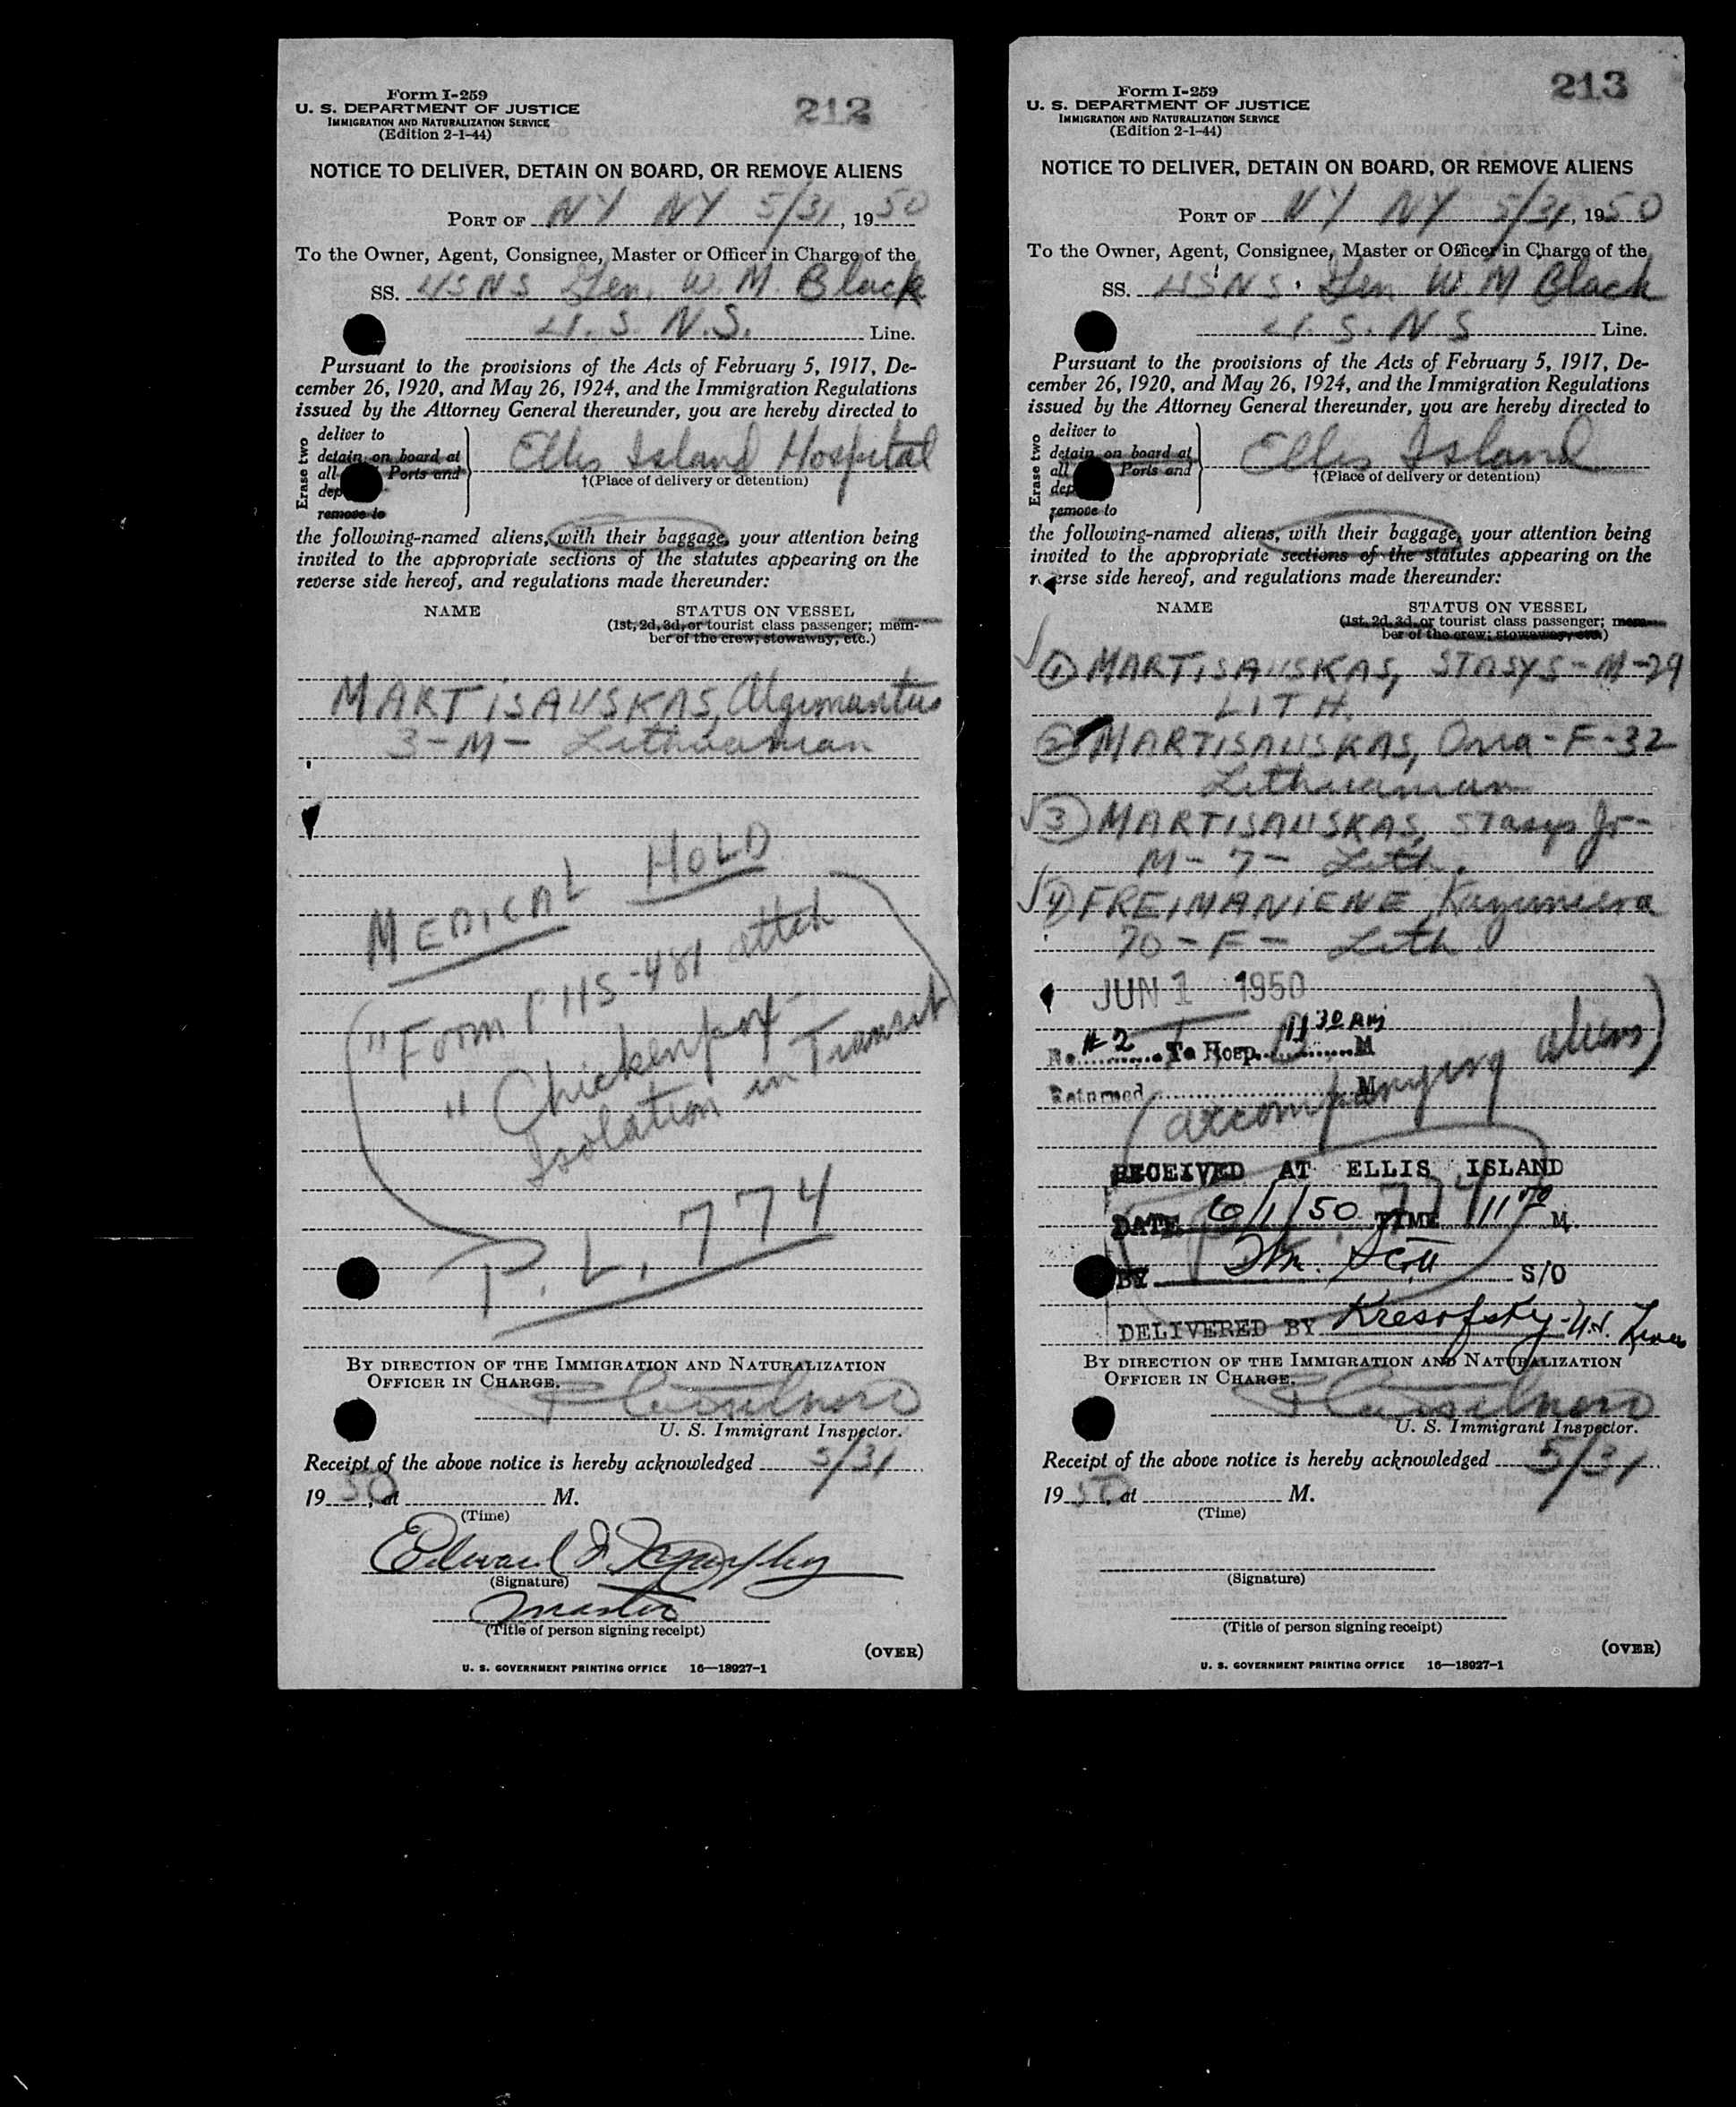 Form I-259
U. S. DEPARTMENT OF JUSTICE
IMMIGRATION AND NATURALIZATION SERVICE
(Edition 2-1-44)
212
NOTICE TO DELIVER, DETAIN ON BOARD, OR REMOVE ALIENS
PORT OF NY NY 5/31, 1950
To the Owner, Agent, Consignee, Master or Officer in Charge of the
SS. USNS Gen. W. M. Black
U. S. N.S. Line.
Pursuant to the provisions of the Acts of February 5, 1917, De-
cember 26, 1920, and May 26, 1924, and the Immigration Regulations
issued by the Attorney General thereunder, you are hereby directed to
Erase two
deliver to
detain on board at
all Ports and
dep
remove to
Ellis Island Hospital
†(Place of delivery or detention)
the following-named aliens, with their baggage, your attention being
invited to the appropriate sections of the statutes appearing on the
reverse side hereof, and regulations made thereunder:
NAME STATUS ON VESSEL
(1st, 2d, 3d, or tourist class passenger; mem-
ber of the crew; stowaway, etc.)
MARTISAUSKAS, Algimantus
3-M- Lithuanian
MEDICAL HOLD
"Form PHS-481 attch
" Chickenpox-
Isolation in Transit
P. L. 774
BY DIRECTION OF THE IMMIGRATION AND NATURALIZATION
OFFICER IN CHARGE.
U. S. Immigrant Inspector.
Receipt of the above notice is hereby acknowledged 5/31
1950, at M.
(Time)
Edward J.
(Signature)
Master
(Title of person signing receipt)
(OVER)
U. S. GOVERNMENT PRINTING OFFICE 16—18927-1
Form I-259
U. S. DEPARTMENT OF JUSTICE
IMMIGRATION AND NATURALIZATION SERVICE
(Edition 2-1-44)
213
NOTICE TO DELIVER, DETAIN ON BOARD, OR REMOVE ALIENS
PORT OF NY NY 5/31, 1950
To the Owner, Agent, Consignee, Master or Officer in Charge of the
SS. USNS. Gen W. M Black
U. S. N S Line.
Pursuant to the provisions of the Acts of February 5, 1917, De-
cember 26, 1920, and May 26, 1924, and the Immigration Regulations
issued by the Attorney General thereunder, you are hereby directed to
Erase two
deliver to
detain on board at
all Ports and
dep
remove to
Ellis Island
†(Place of delivery or detention)
the following-named aliens, with their baggage, your attention being
invited to the appropriate sections of the statutes appearing on the
reverse side hereof, and regulations made thereunder:
NAME STATUS ON VESSEL
(1st, 2d, 3d, or tourist class passenger; mem-
ber of the crew; stowaway, etc.)
① MARTISAUSKAS, STASYS-M-29
LITH.
② MARTISAUSKAS, Ona-F-32
Lithuanian
③ MARTISAUSKAS, STasys Jr-
M-7- Lith.
④ FREIMANIENE Kazimiera
70-F- Lith
JUN 1 1950
No. #2 To Hosp. 11 30 AM M
Returned M
(accompanying aliens)
RECEIVED AT ELLIS ISLAND
774
DATE 6/1/50 TIME 11 M.
BY Wm. Scott S/O
DELIVERED BY Kresofsky-U.S. Lines
BY DIRECTION OF THE IMMIGRATION AND NATURALIZATION
OFFICER IN CHARGE.
U. S. Immigrant Inspector.
Receipt of the above notice is hereby acknowledged 5/31
1950, at M.
(Time)
(Signature)
(Title of person signing receipt)
(OVER)
U. S. GOVERNMENT PRINTING OFFICE 16—18927-1